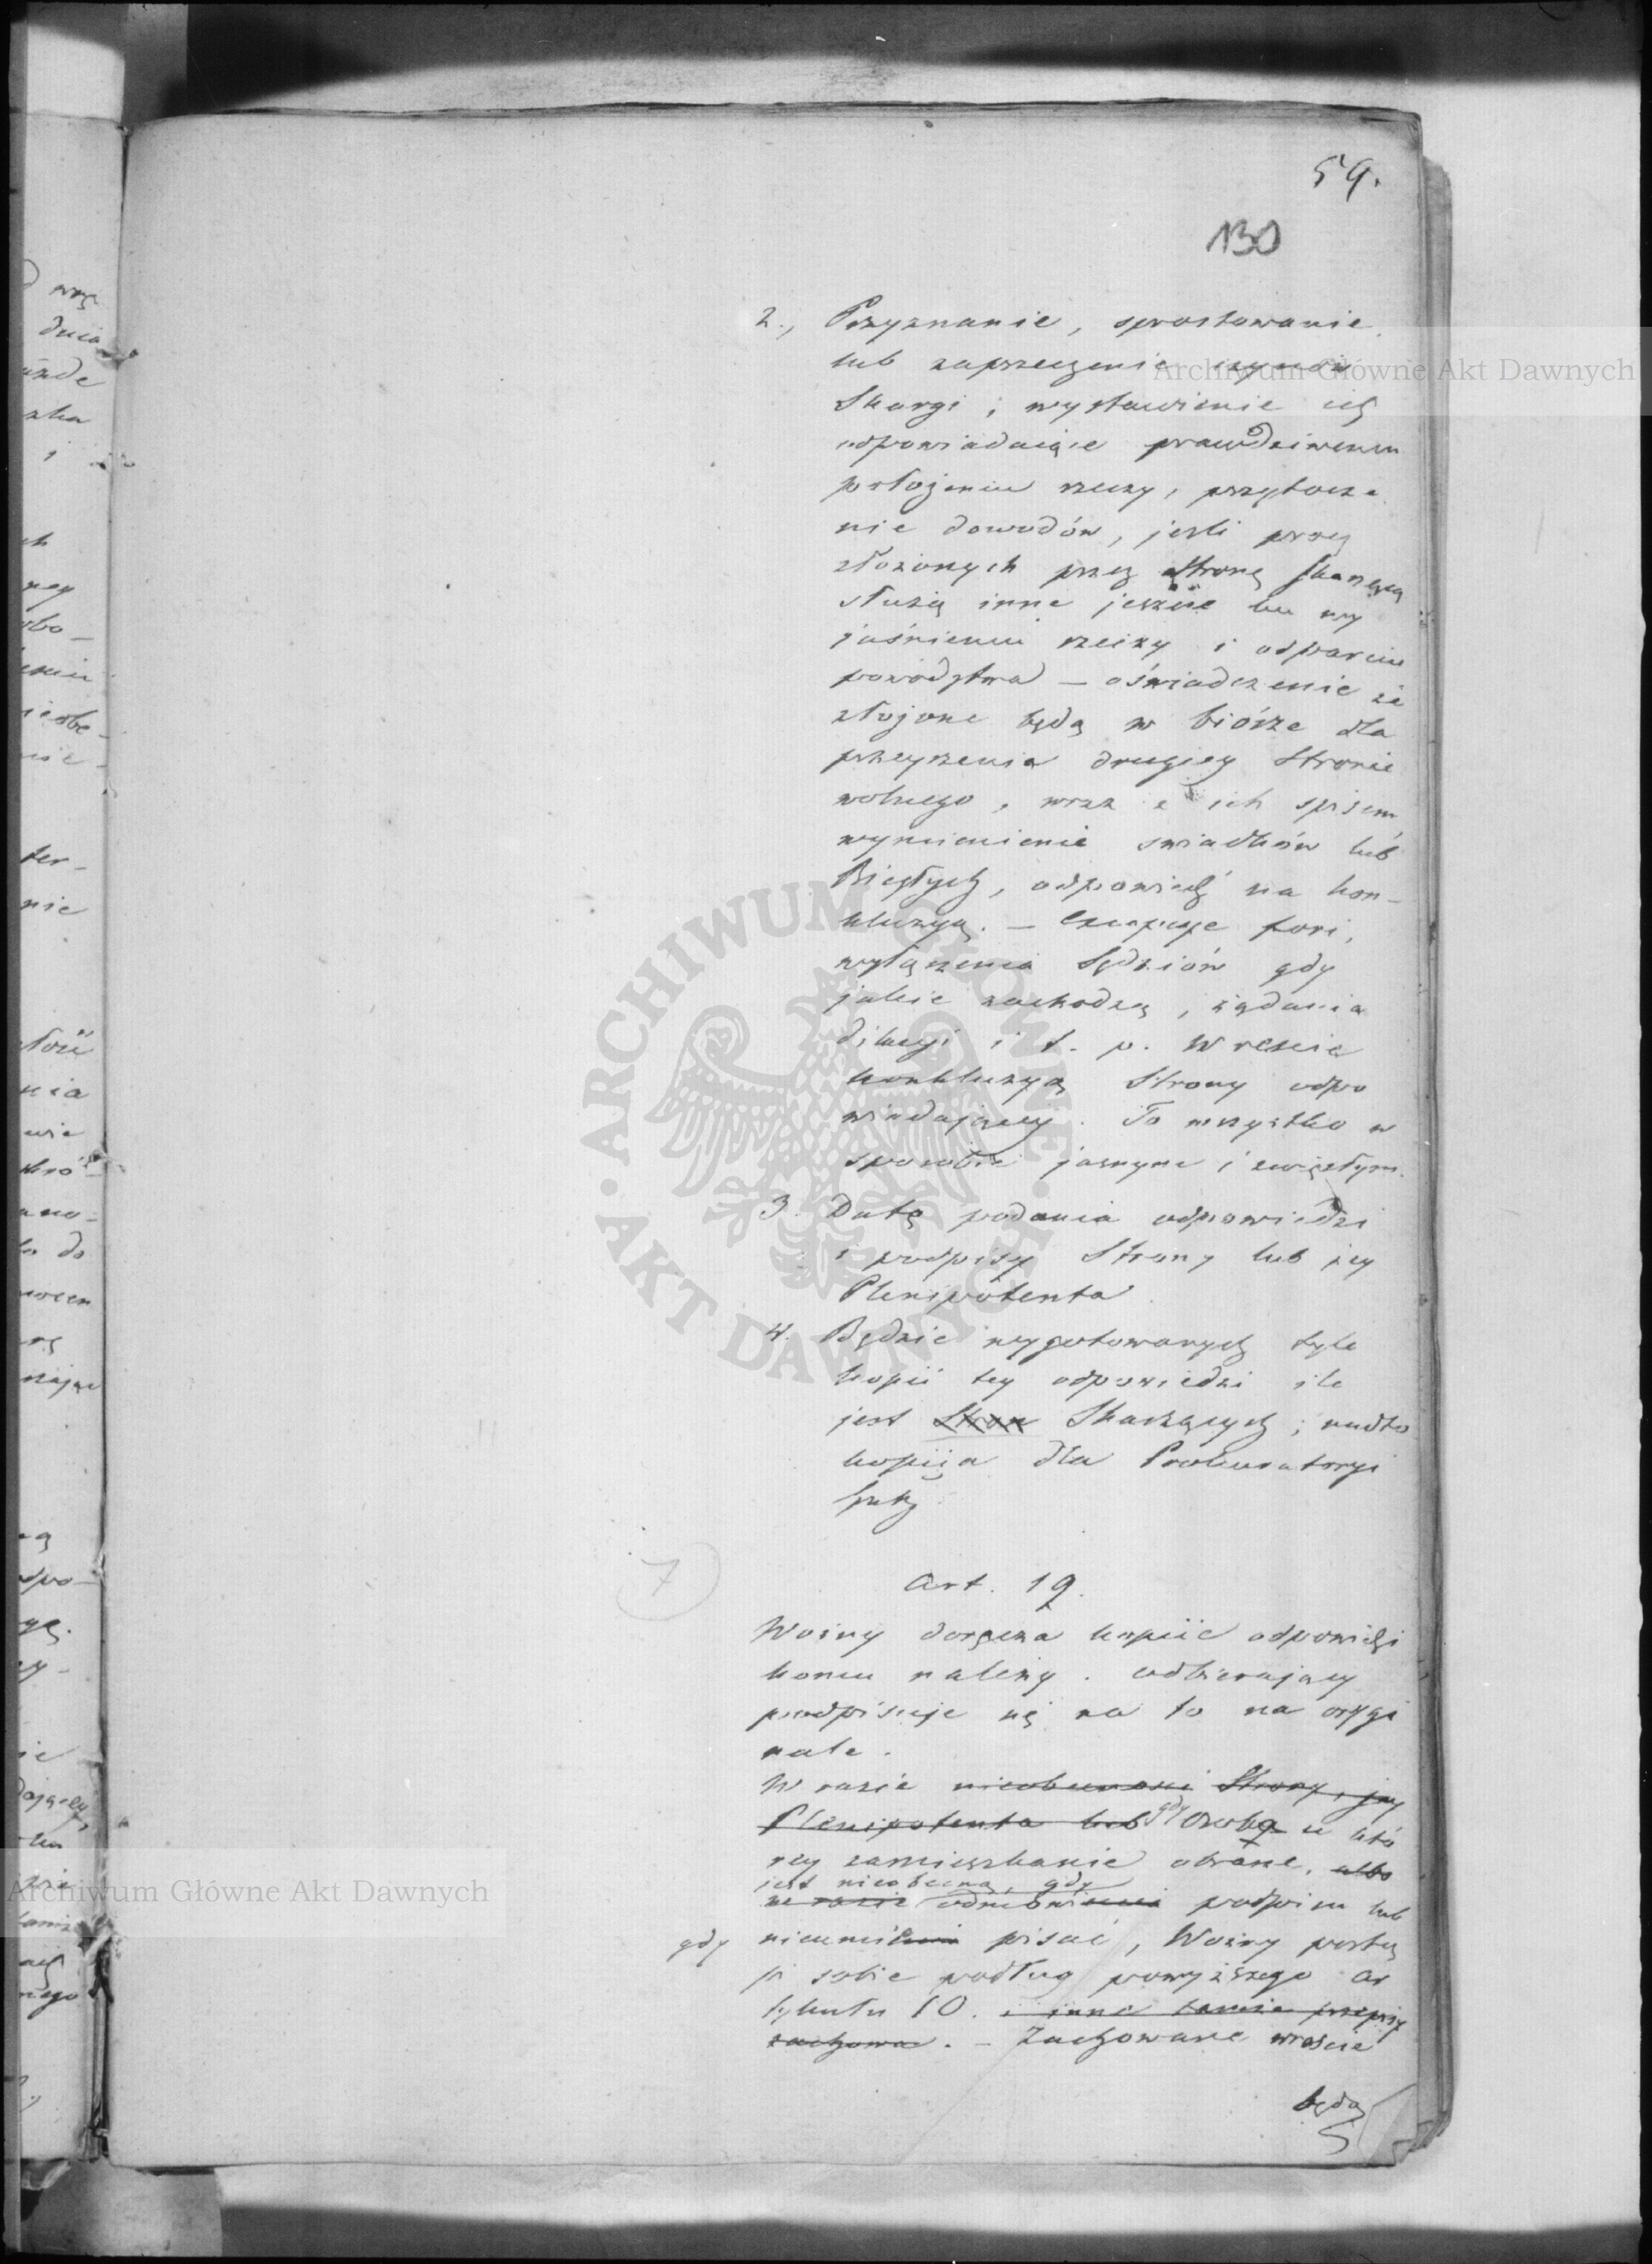 59.
130
2., Przyznanie, sprostowanie
lub zaprzeczenie czynów
Skargi; wystawienie ich
odpowiadaiące prawdziwemu
położeniu rzeczy, przytocze
nie dowodów, jeśli prócz
złożonych przez Stronę skarżącą
służą inne jeszcze ku wy
jaśnieniu rzeczy i odparciu
powództwa — oświadczenie że
złożone będą w biórze dla
przeyrzenia drugiey Stronie
wolnego, wraz z ich spisem
wymienienie swiadków lub
Biegłych, odpowiedź na kon-
kluzyą. — Excepcye fori,
wyłączenia Sędziów gdy
jakie zachodzą, żądania
dilacyi i t. p. Wreście
konkluzyą Strony odpo
wiadającey. To wszystko w
sposobie jasnym i zwięzłym.
3. Datę podania odpowiedzi
i podpisy Strony lub jey
Plenipotenta.
4. Będzie wygotowanych tyle
kopii tey odpowiedzi ile
jest Stron Skarżących; nadto
kopija dla Prokuratoryi
7
Art. 19.
Woźny doręcza kopiie odpowiedzi
komu należy. Odbierający
podpisuje się na to na orygi
nale.
W razie nieobecności Strony, jey
Plenipotenta lub gdy Osoba u któ
rey zamieszkanie obrane, albo
jest nieobecna, gdy
w razie odmówienia podpisu lub
gdy nieumie pisać, Woźny postą
pi sobie podług powyższego Ar
tykułu 10. i inne tamże przepisy
zachowa. — Zachowane wreście
będą
Archiwum Główne Akt Dawnych
Archiwum Główne Akt Dawnych
ARCHIWUM GŁÓWNE AKT DAWNYCH